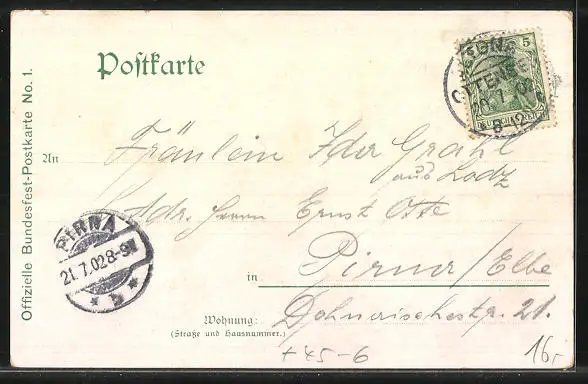 Postkarte
Offizielle Bundesfest-Postkarte No. 1.
5
DEUTSCHES REICH
OTTENSEN
An Fräulein Ida Grahl
aus Lodz
Adr. Herrn Ernst Otte
in Pirna/Elbe
Wohnung: Dohnaischestr. 21.
(Straße und Hausnummer.)
PIRNA
21.7.02 8-9V
* b *
+ 45-6
16,-